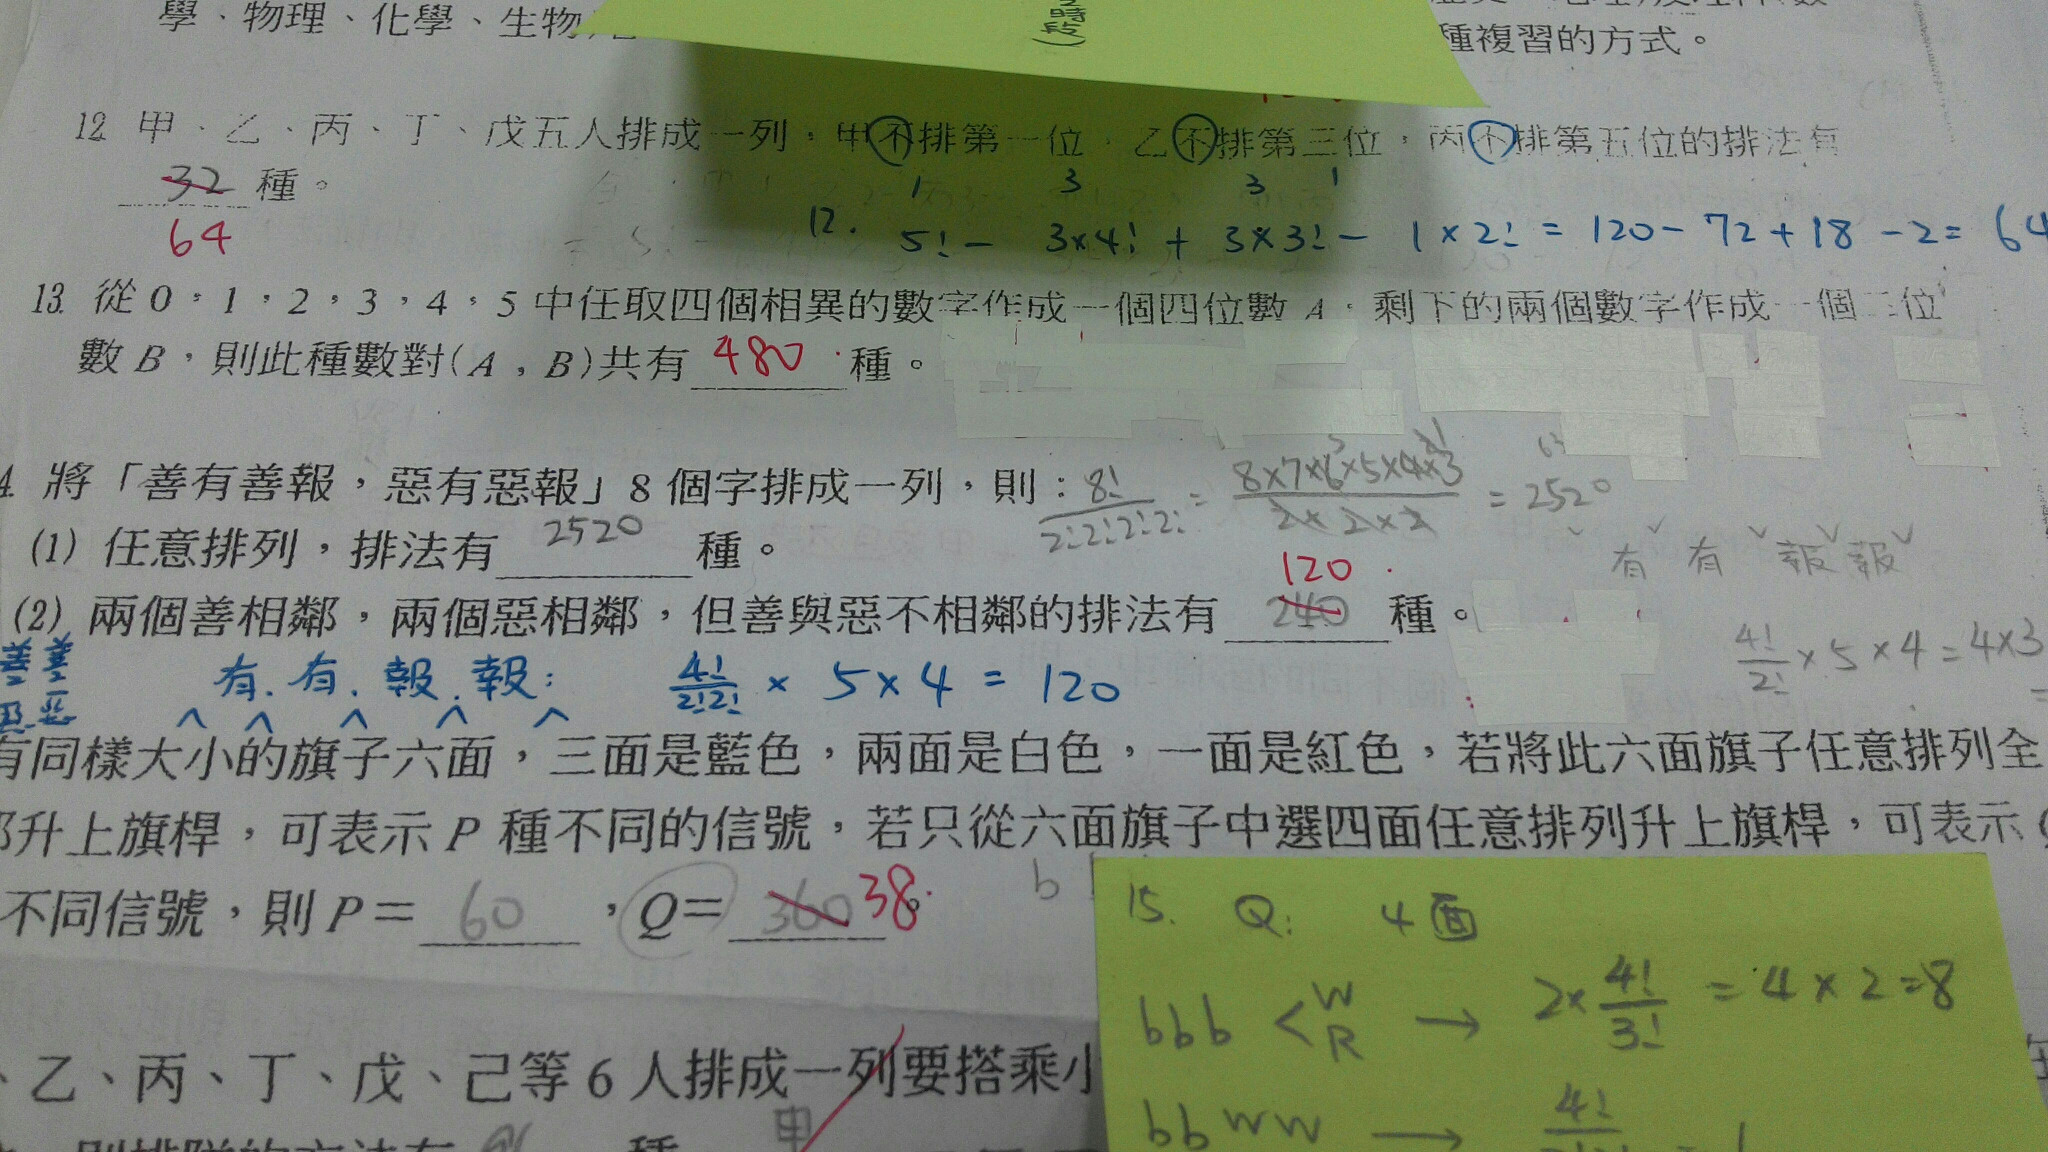 學、物理、化學、生物
時段)
種複習的方式。
12. 甲、乙、丙、丁、戊五人排成一列,甲不排第一位,乙不排第三位,丙不排第五位的排法有
32 種。
64
1 3 3 1
12. 5! - 3×4! + 3×3! - 1×2! = 120 - 72 + 18 - 2 = 64
13. 從 0,1,2,3,4,5 中任取四個相異的數字作成一個四位數 A,剩下的兩個數字作成一個二位
數 B,則此種數對(A,B)共有 480 種。
4. 將「善有善報,惡有惡報」8 個字排成一列,則:
8!/2!2!2!2! = 8×7×6×5×4×3/2×2×2 = 2520
(1) 任意排列,排法有 2520 種。
有 有 報 報
120
(2) 兩個善相鄰,兩個惡相鄰,但善與惡不相鄰的排法有 240 種。
4!/2! × 5 × 4 = 4×3
善善
惡惡
有.有.報.報: 4!/2!2! × 5×4 = 120
有同樣大小的旗子六面,三面是藍色,兩面是白色,一面是紅色,若將此六面旗子任意排列全
部升上旗桿,可表示 P 種不同的信號,若只從六面旗子中選四面任意排列升上旗桿,可表示
不同信號,則 P= 60 ,Q= 360 38。
b
15. Q: 4面
bbb < W R → 2×4!/3! = 4×2=8
bbww → 4!
、乙、丙、丁、戊、己等 6 人排成一列要搭乘小
甲
種